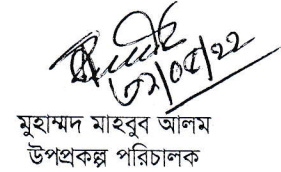 ৩১/০৫/২২
মুহাম্মদ মাহবুব আলম
উপপ্রকল্প পরিচালক